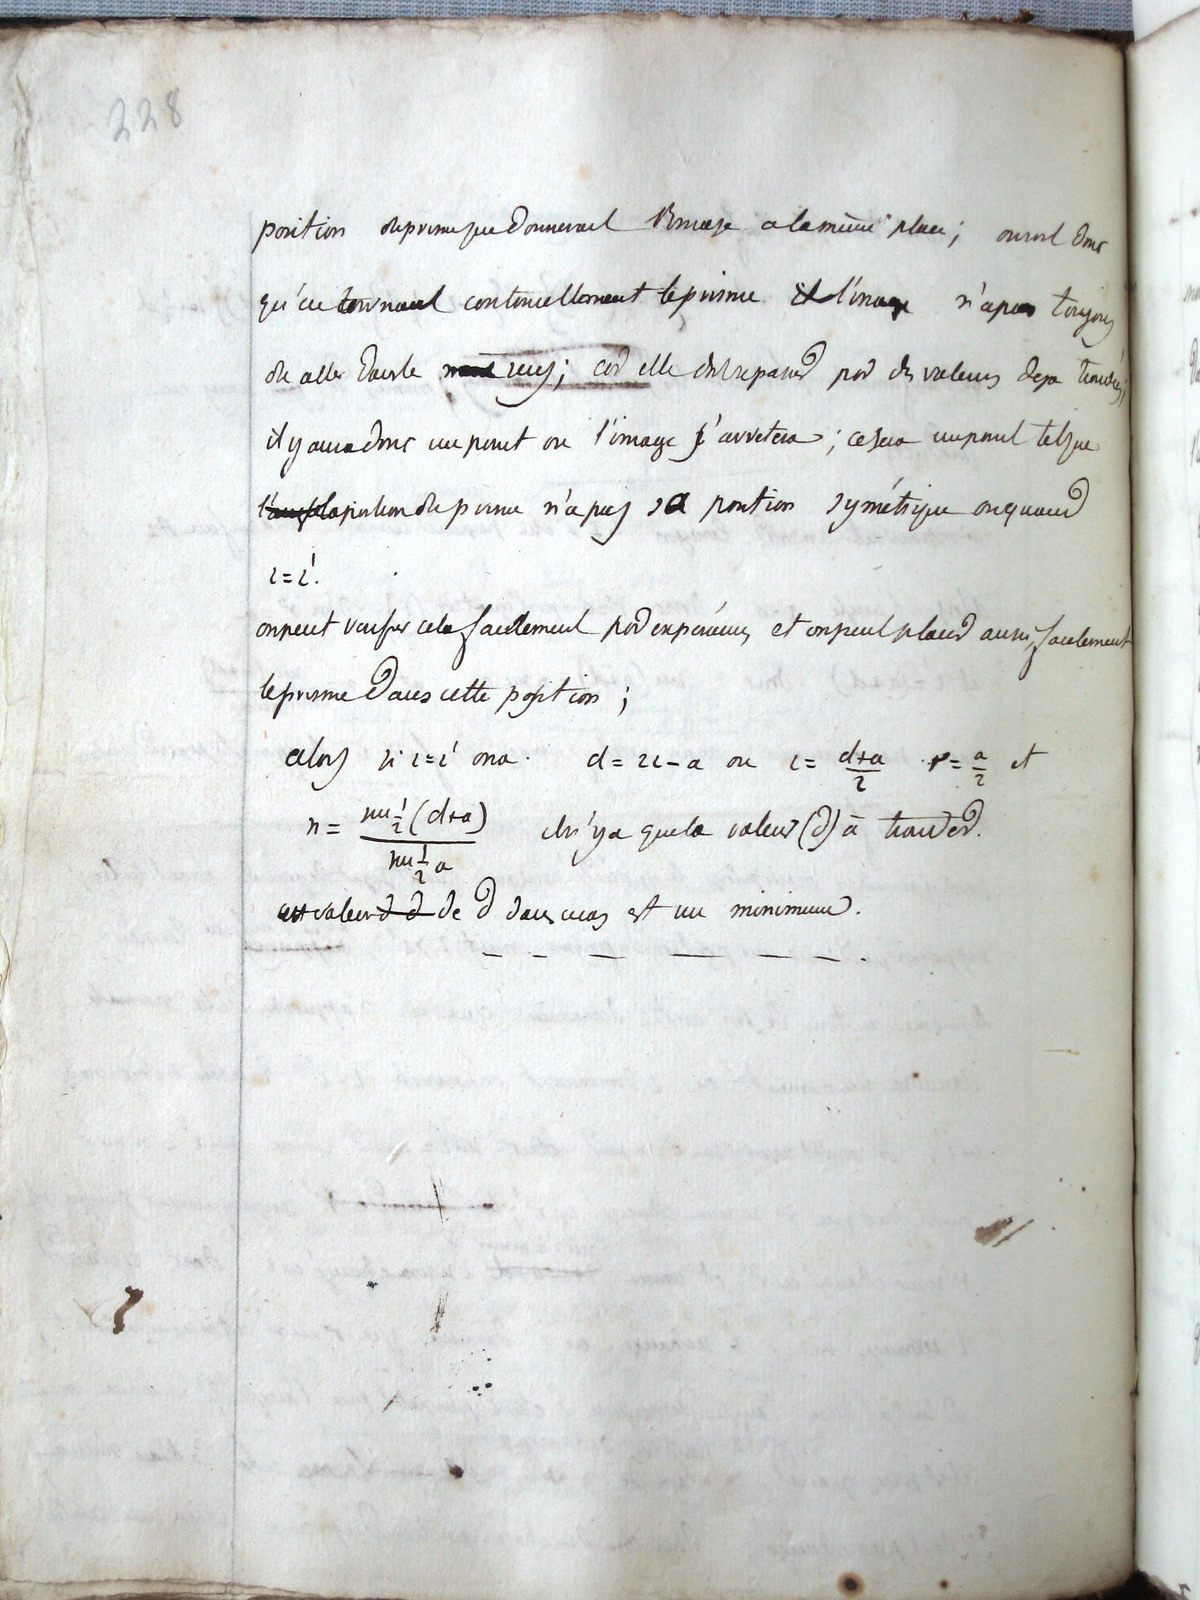 228
position du prisme que donnerait l'image a la même place; on voit donc
qu'en tournant continuellement le prisme l'image n'a pas toujours
de aller dans le sens; car elle doit repasser par des valeurs deja trouvées;
il y aura donc un point ou l'image s'arretera; ce sera un point tel que
la position du prisme n'a pas sa position symétrique ou quand
i=i'.
on peut verifier cela facilement par experience, et on peut placer aussi facilement
le prisme dans cette position;
alors si i=i' on a d=2i-a ou i= \frac{d+a}{2} r= \frac{a}{2} et
n= \frac{sin \frac{1}{2}(d+a)}{sin \frac{1}{2} a} il n'y a que la valeur (d) à trouver.
cette valeur de d dans ce cas est un minimum.